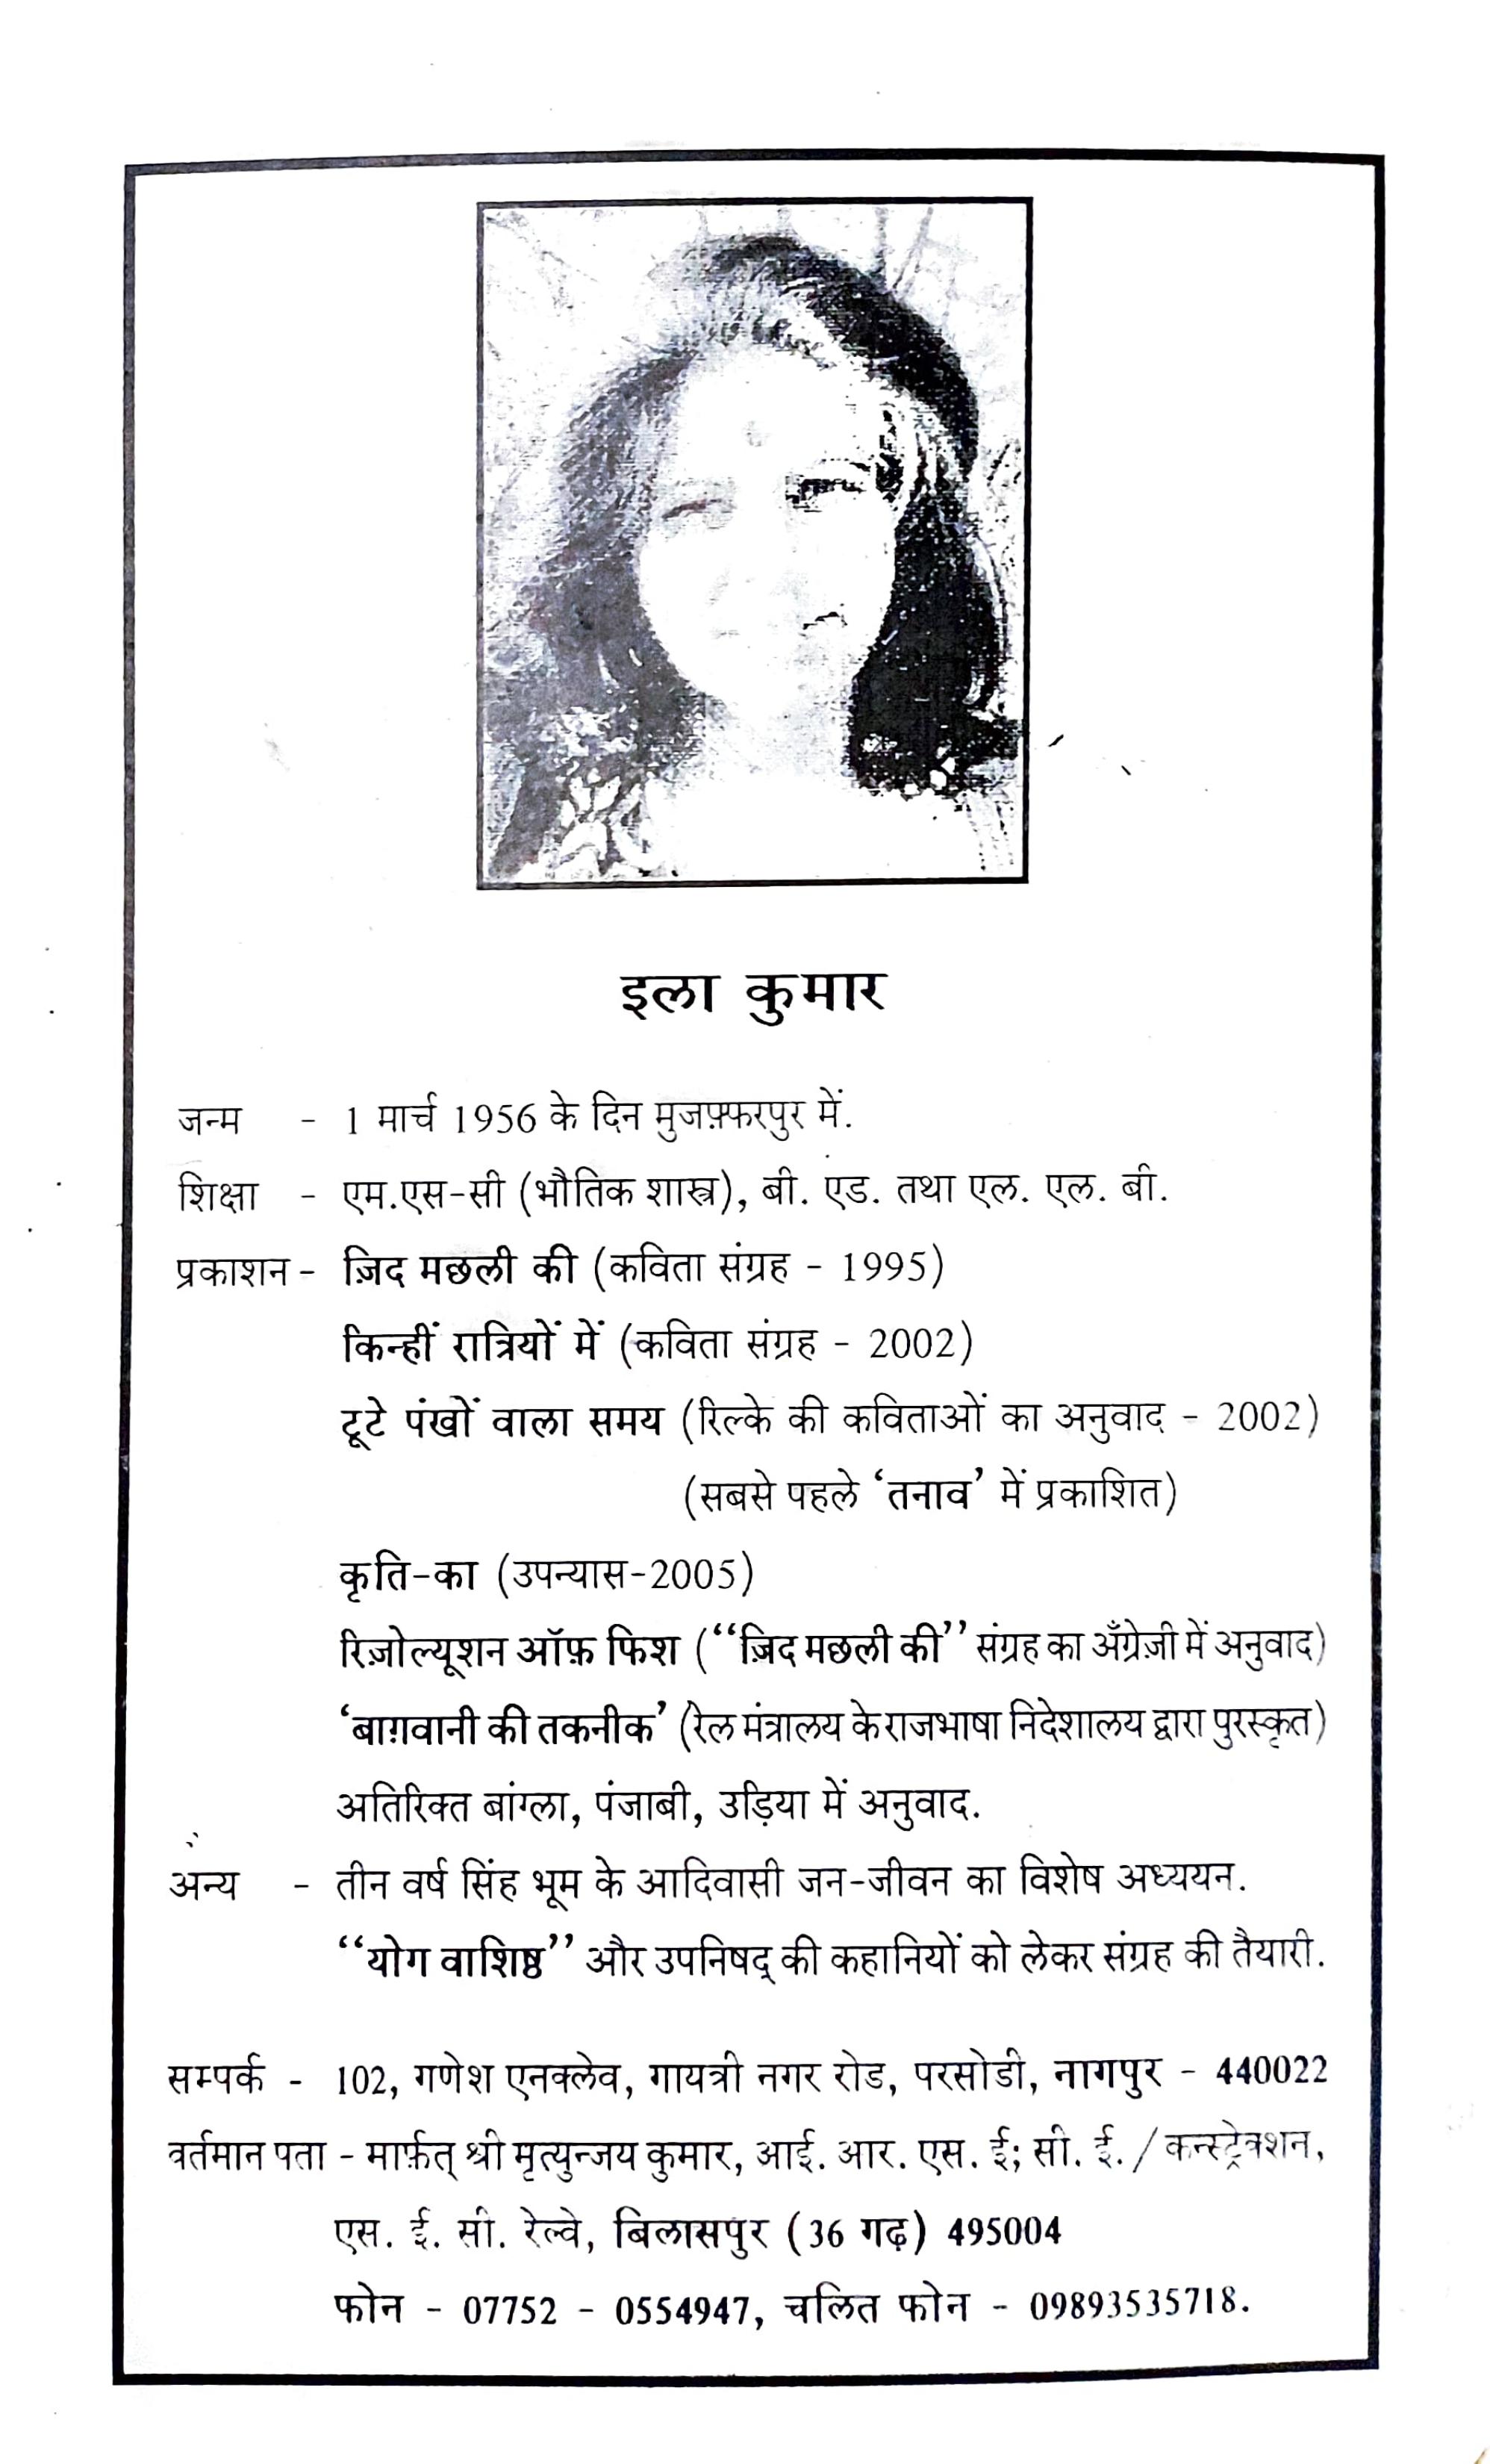 इला कुमार
जन्म - 1 मार्च 1956 के दिन मुजफ़्फ़रपुर में.
शिक्षा - एम.एस-सी (भौतिक शास्त्र), बी. एड. तथा एल. एल. बी.
प्रकाशन - ज़िद मछली की (कविता संग्रह - 1995)
किन्हीं रात्रियों में (कविता संग्रह - 2002)
टूटे पंखों वाला समय (रिल्के की कविताओं का अनुवाद - 2002)
(सबसे पहले ‘तनाव’ में प्रकाशित)
कृति-का (उपन्यास-2005)
रिज़ोल्यूशन ऑफ़ फिश (“ज़िद मछली की” संग्रह का अँग्रेज़ी में अनुवाद)
‘बाग़वानी की तकनीक’ (रेल मंत्रालय के राजभाषा निदेशालय द्वारा पुरस्कृत)
अतिरिक्त बांग्ला, पंजाबी, उड़िया में अनुवाद.
अन्य - तीन वर्ष सिंह भूम के आदिवासी जन-जीवन का विशेष अध्ययन.
“योग वाशिष्ठ” और उपनिषद् की कहानियों को लेकर संग्रह की तैयारी.
सम्पर्क - 102, गणेश एनक्लेव, गायत्री नगर रोड, परसोडी, नागपुर - 440022
वर्तमान पता - मार्फ़त् श्री मृत्युन्जय कुमार, आई. आर. एस. ई; सी. ई. / कन्स्ट्रेक्शन,
एस. ई. सी. रेल्वे, बिलासपुर (36 गढ़) 495004
फोन - 07752 - 0554947, चलित फोन - 09893535718.